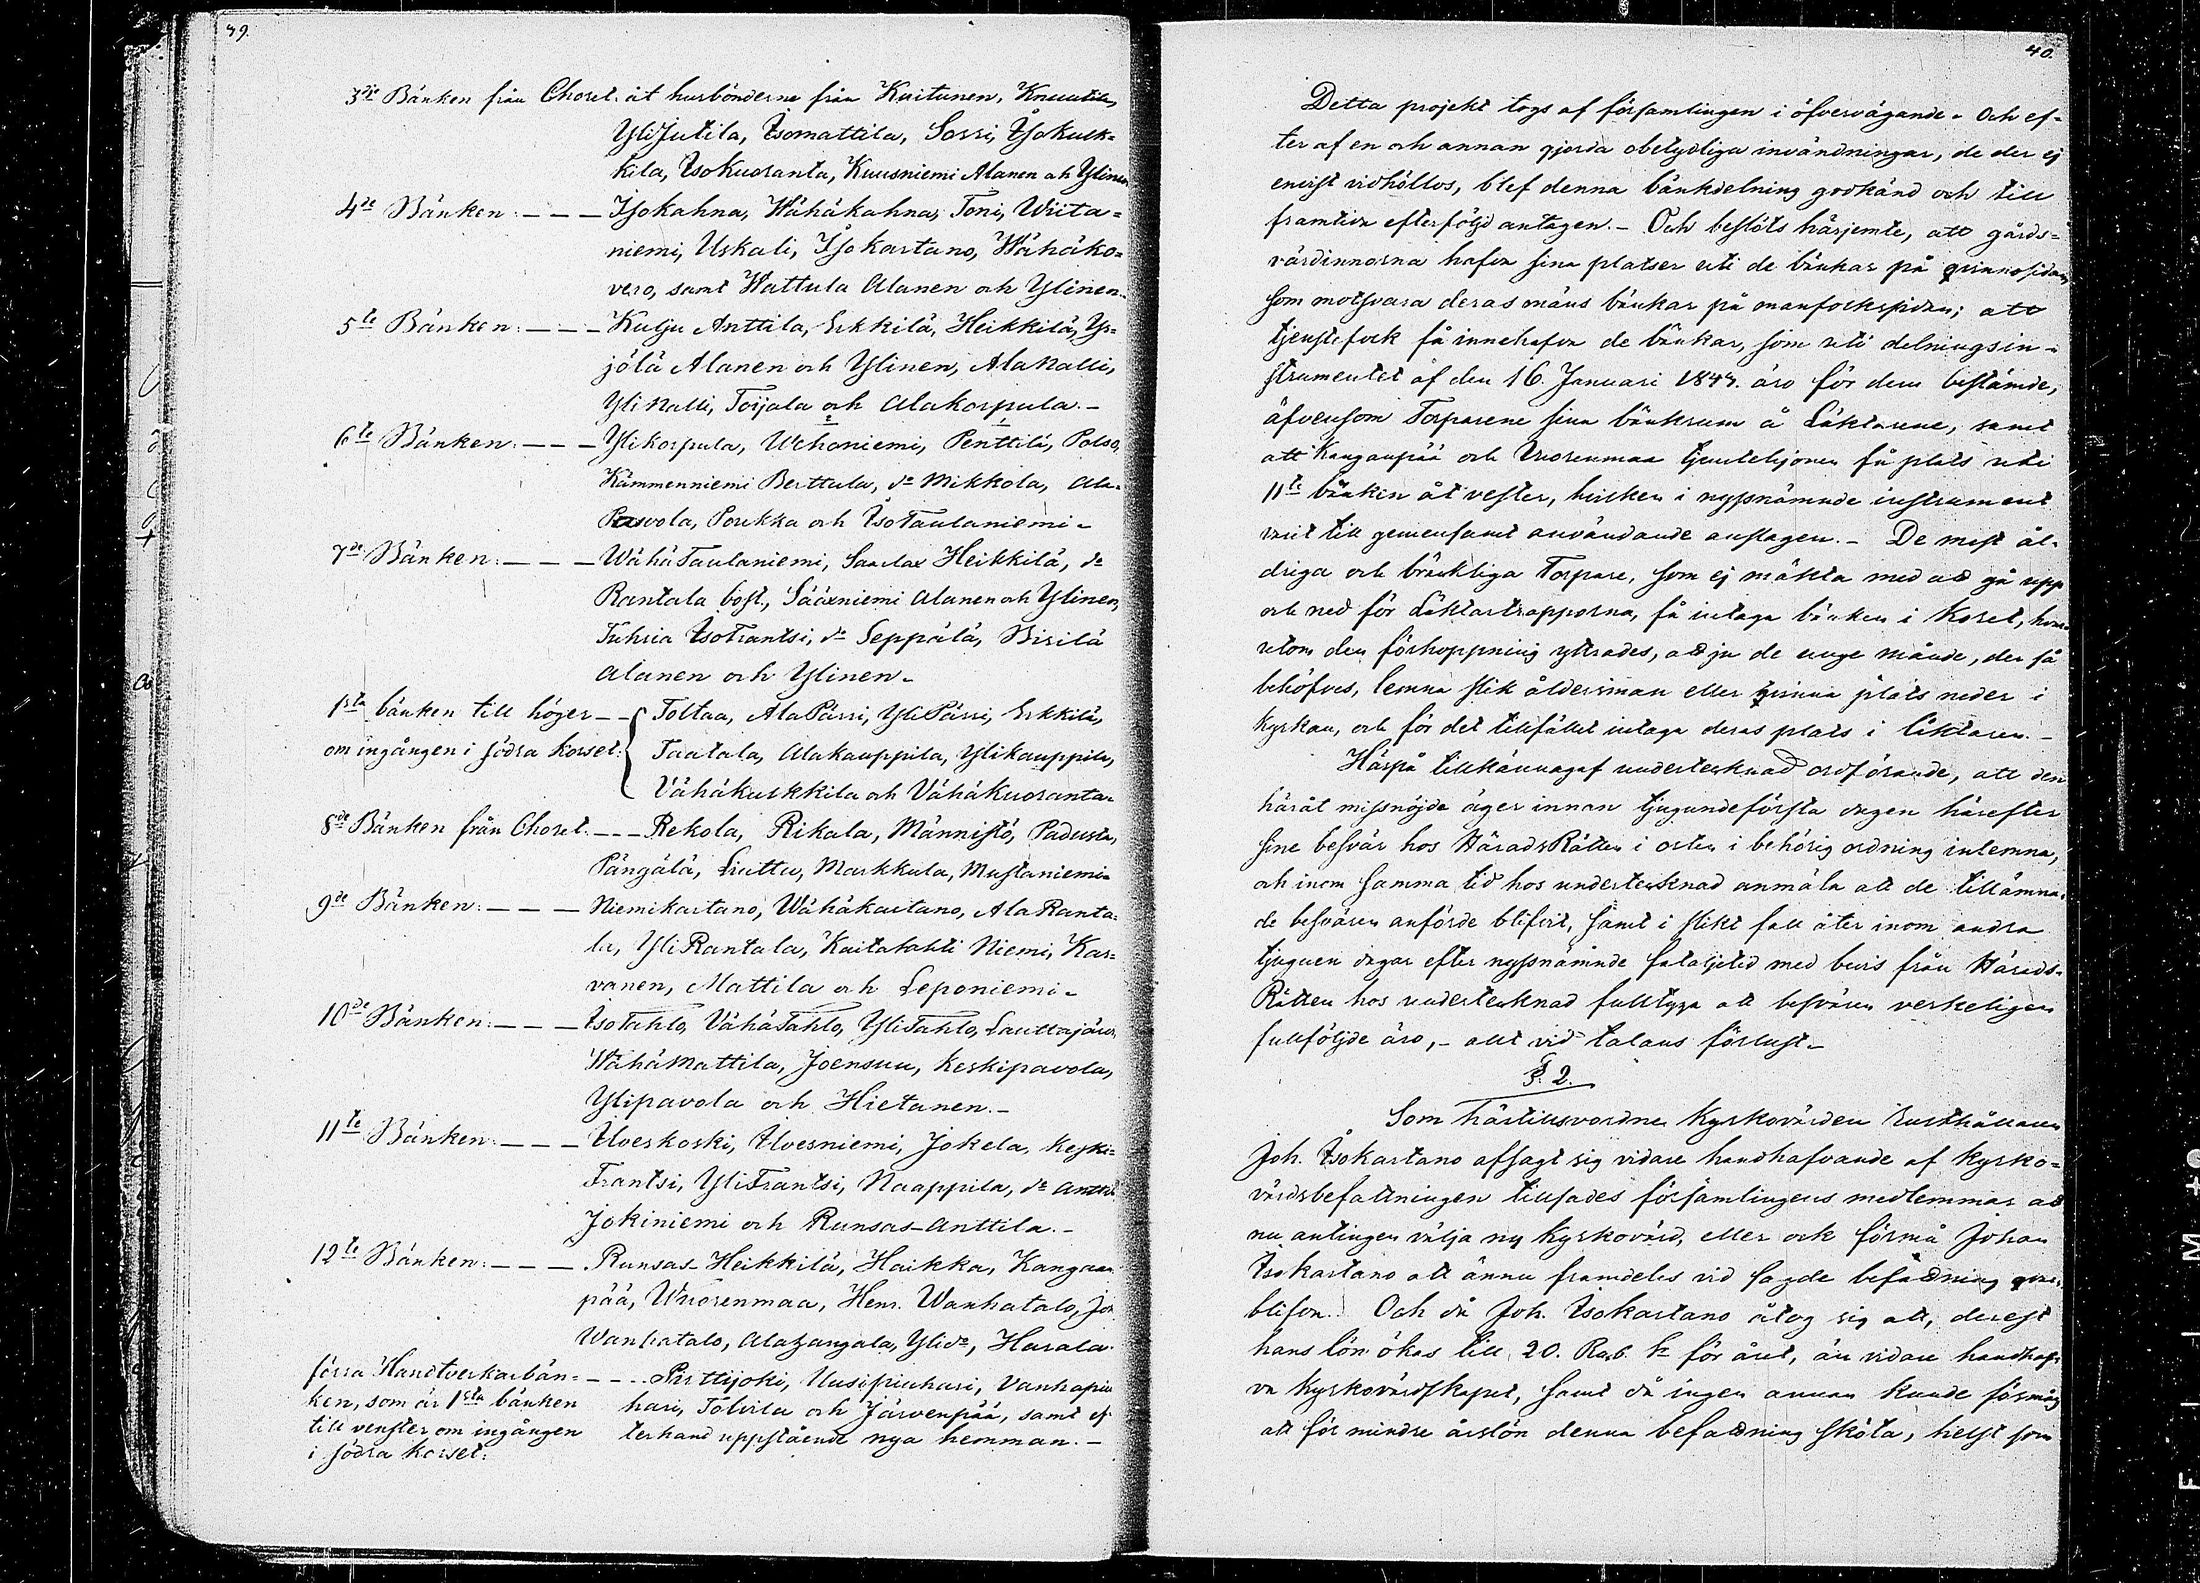 39.
3dje Bänken från Choret. åt husbönderne från Kuitunen, Knuutila,
YliJutila, Isomattila, Sorri, IsoKusk-
kila, IsoKuoranta, Kuusniemi Alanen och Ylinen
4de Bänken: — — — Isokahna, Wähäkahna, Toni, Wiita-
niemi, Uskali, Isokartano, Wähäko-
vero, samt Wattula Alanen och Ylinen.
5te Bänken: — — — Kulju Anttila, Erkkilä, Heikkilä, Yr-
jölä Alanen och Ylinen, AlaNalli,
YliNalli, Toijala och Alakorpula.—
6te Bänken: — — — Ylikorpula, Uchoniemi, Penttilä, Polso,
Kämmenniemi Berttula, do Mikkola, Ala-
Pasvola, Poukka och IsoTaulaniemi.
7de Bänken: — — — WähäTaulaniemi, Saarlax Heikkilä, do
Rantala bost., Sääxniemi Alanen och Ylinen,
Tuhria IsoFrantsi, do Seppälä, Birilä
Alanen och Ylinen.
1sta bänken till höger — — Toltaa, AlaPärri, YliPärri, Erkkilä,
om ingången i södra korset: Taatala, Alakauppila, Ylikauppila,
Vähäkuskkila och VähäKuoranta.
8de Bänken från Choret. — — — Rekola, Rikala, Männistö, Padusta,
Pängälä, Liuttu, Markkula, Mustaniemi.
9de Bänken: — — — Niemikartano, Wähäkartano, AlaRanta-
la, YliRantala, Kaitalahti Niemi, Kar-
vanen, Mattila och Leponiemi.
10de Bänken: — — — IsoTahlo, VähäTahlo, YliTahlo, Lauttajärvi,
WähäMattila, Joensuu, Keskipavola,
Ylipavola och Hietanen.—
11te Bänken: — — — Ilveskoski, Ilvesniemi, Jokela, Keski-
Frantsi, YliFrantsi, Naappila, do Anttila
Jokiniemi och Runsas-Anttila.—
12te Bänken: — — — Runsas-Heikkilä, Haikka, Kangaan-
pää, Wuorenmaa, Henr. Wanhatalo, Joh.
Wanhatalo, Alazangala, Ylido, Harala.
förra Handtverkarbän- — — — Pirttijoki, Uusipiuhari, Vanhapiu
ken, som är 1sta bänken hari, Tölvila och Järvenpää, samt ef
till venster om ingången terhand uppstående nya hemman.—
i södra korset.
40.
Detta projekt togs af församlingen i öfvervägande. Och ef-
ter af en och annan gjorda obetydliga invändningar, de der ej
envist vidhöllos, blef denna bänkdelning godkänd och till
framtida efterföljd antagen.— Och beslöts härjemte, att gårds-
värdinnorna hafva sina platser uti de bänkar på qvinnosidan,
som motsvara deras mäns bänkar på manfolkssidan; att
tjenstefolk få innehafva de bänkar, som uti delningsin-
strumentet af den 16. Januari 1847. äro för dem bestämde,
äfvensom Torparene sina bänkrum å Läktarene, samt
att Kangaspää och Vuorenmaa tjenstehjonen få plats uti
11te bänken åt vester, hvilken i nyssnämnde instrument
varit till gemensamt användande anslagen.— De mest ål-
driga och bräckliga Torpare, som ej mäkta med att gå upp
och ned för Läktartrapporna, få intaga bänken i Koret, hvar-
utom den förhoppning yttrades, att ju de unge månde, der så
behöfves, lemna slik åldersman eller qvinna plats neder i
kyrkan, och för det tillfället intaga deras plats i läktaren.—
Härpå tillkännagaf undertecknad ordförande, att den
häråt missnöjde äger innan tjugundeförsta dagen härefter
sine besvär hos HäradsRätten i orten i behörig ordning inlemna,
och inom samma tid hos undertecknad anmäla att de tillämna-
de besvären anförde blifvit, samt i slikt fall åter inom andra
tjuguen dagar efter nyssnämnde fataljetid med bevis från Härads-
Rätten hos undertecknad fulltyga att besvären verkeligen
fullföljde äro,— allt vid talans förlust.
§. 2.
Som härtillsvordne Kyrkovärden Rusthållaren
Joh. Isokartano afsagt sig vidare handhafvande af kyrko-
värdsbefattningen tillsades församlingens medlemmar att
nu antingen välja ny Kyrkovärd, eller ock förmå Johan
Isokartano att ännu framdeles vid sagde befattning qvar-
blifva. Och då Joh. Isokartano åtog sig att, derest
hans lön ökas till 20. Rub. för året, än vidare handhaf-
va kyrkovärdskapet, samt då ingen annan kunde förmås
att för mindre årslön denna befattning sköta, helst som